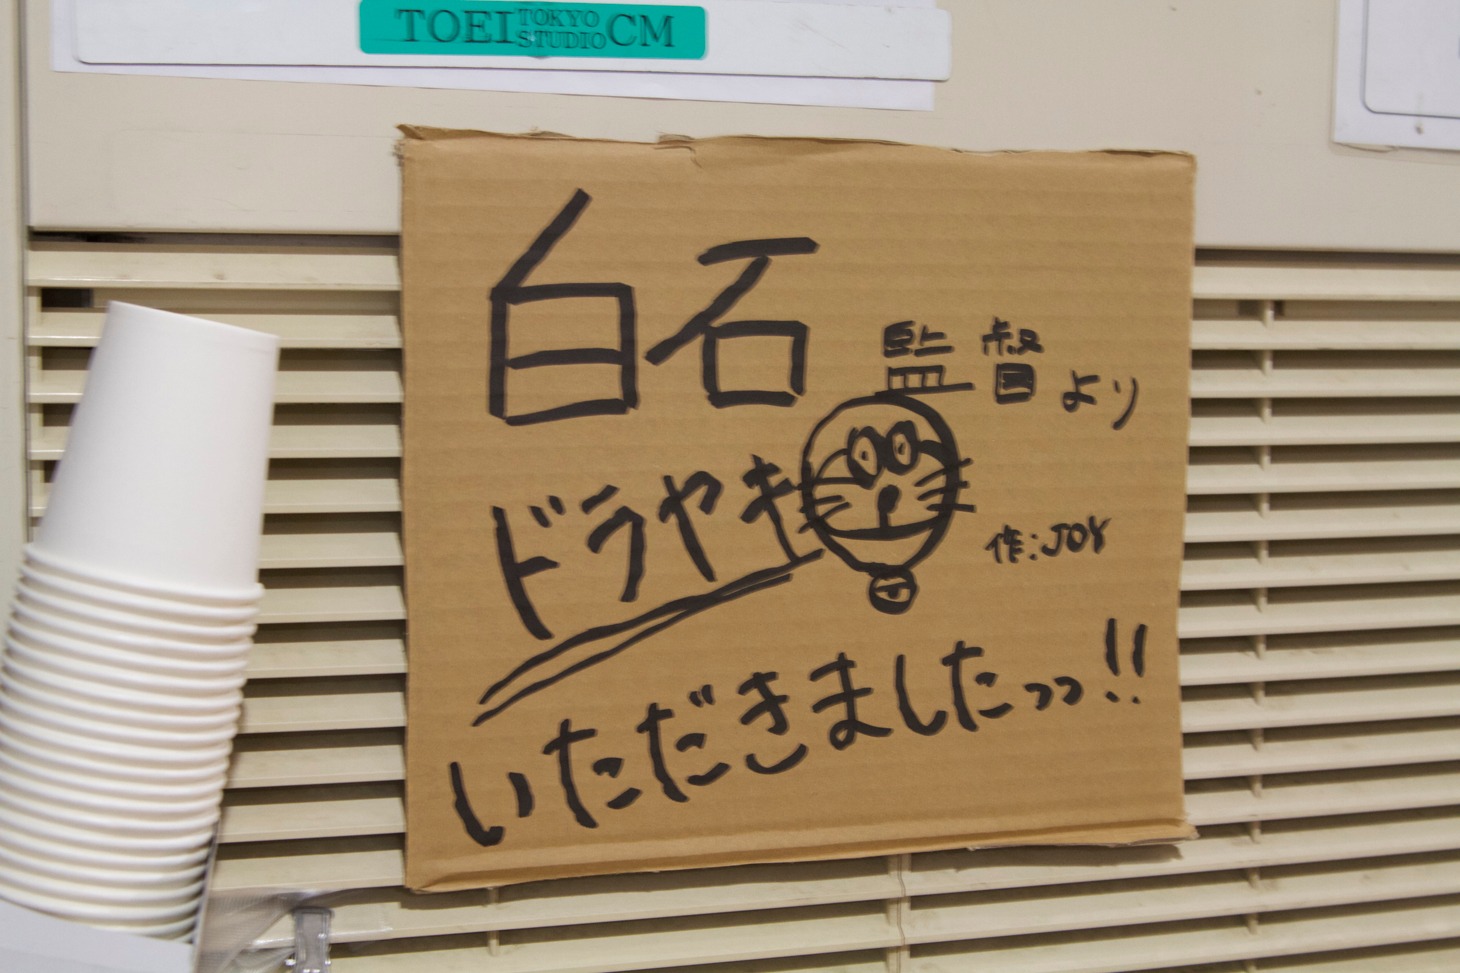 TOEI TOKYO STUDIO CM
白石監督より
ドラヤキ
作:JOY
いただきましたっっ!!